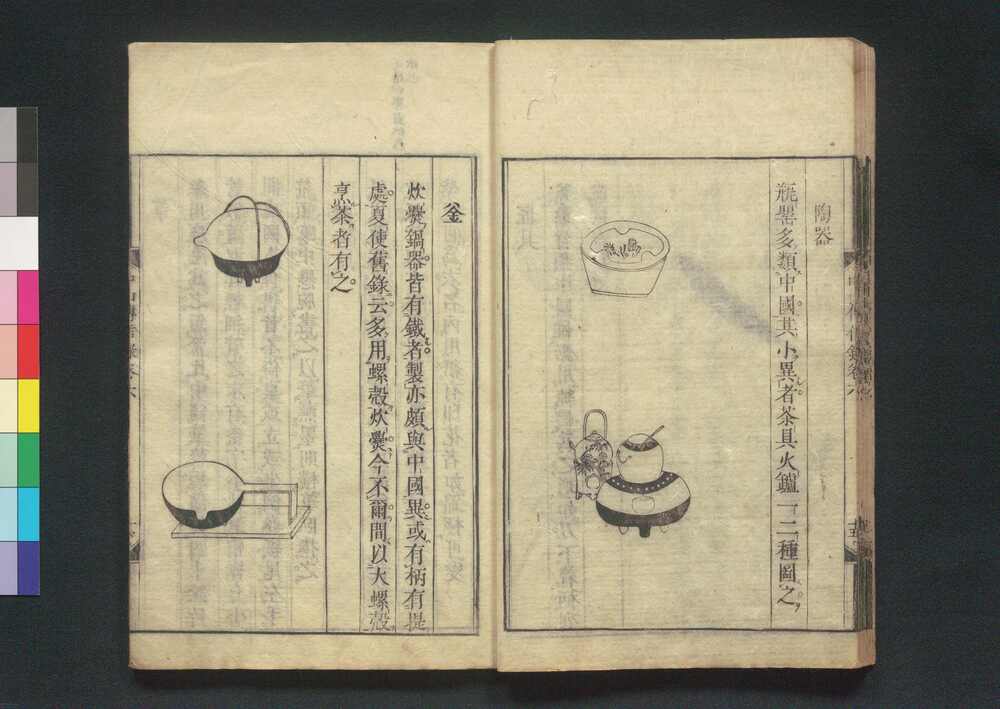 陶器
瓶罌多類中國其小異者茶具火鑪一二種圖之
釜
炊爨鍋器皆有鐵者製亦頗與中國異或有柄有提
處夏使舊錄云多用螺殼炊爨今不爾間以大螺殼
烹茶者有之